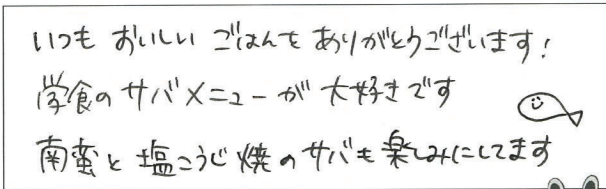 いつも おいしい ごはんを ありがとうございます!
学食のサバメニューが大好きです
南蛮と塩こうじ焼のサバも楽しみにしてます